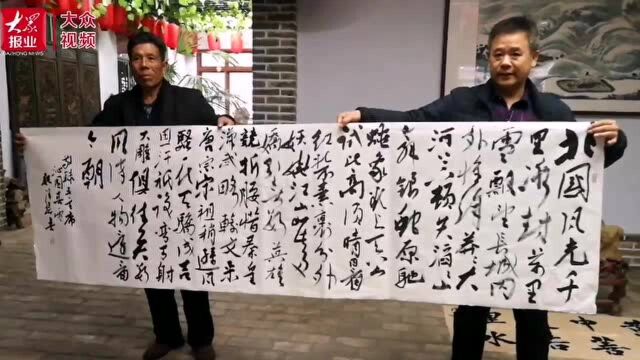 大众
报业
DAZHONG NEWS
大众
视频
北國风光千
里冰封万里
雪飘望长城内
外惟余莽莽大
河上下顿失滔滔山
舞银蛇原驰
蜡象欲与天公
试比高须晴日看
红装素裹分外
妖娆江山如此多
娇引无数英雄
竞折腰惜秦皇
汉武略输文采
唐宗宋祖稍逊风
骚一代天骄成吉
思汗只识弯弓射
大雕俱往矣数
风流人物还看
今朝